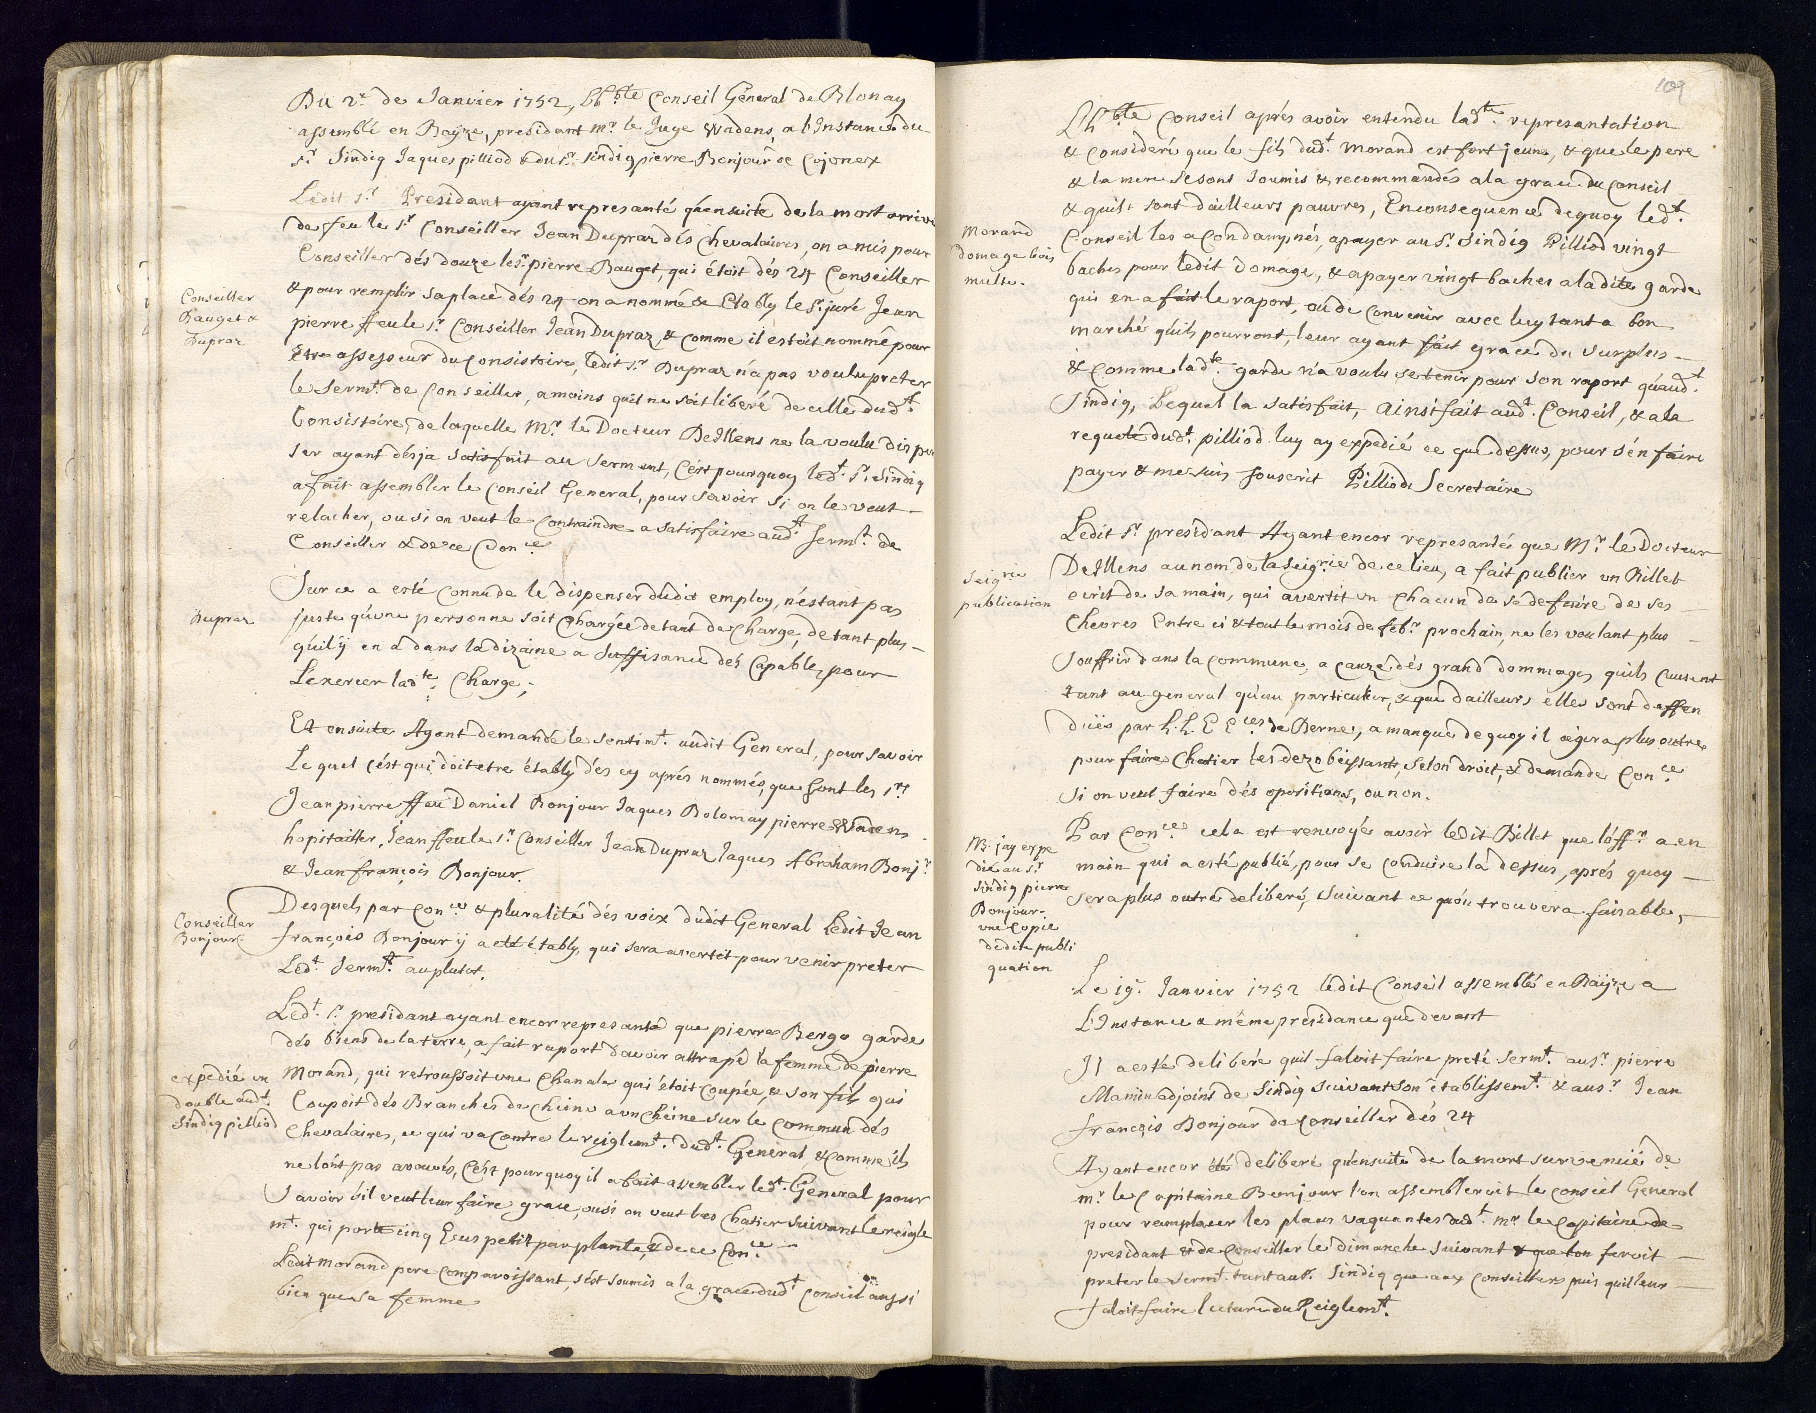 Du 2.e de Janvier 1752, Lh.ble Conseil General de Blonay
assemblé en Bayze, presidant mr. le Juge Wadens, a l'Instance du
sr. Sindiq Jaques pilliod & du sr. Sindiq pierre Bonjour de Cojonex
Ledit sr. Presidant ayant represanté qu'ensuite de la mort arrivé
de feu le sr. Conseiller Jean Dupraz dés Chevalaires, on a mis pour
Conseiller dés douze le sr. pierre Bauget, qui étoit dés 24 Conseiller
Conseiller
Bauget &
Dupraz
& pour remplir sa place dés 24 on a nommé & Etably le sr. juré Jean
pierre ffeu le sr. Conseiller Jean Dupraz, & comme il estoit nommé pour
Etre assesseur du Consistoire, ledit sr. Dupraz n'a pas voulu preter
le Serm.t de Conseiller, a moins qu'il ne soit liberé de celle dud.t
Consistoire, de laquelle Mr. le Docteur DeIllens ne la voulu dispen
ser ayant désja satisfait au Serment, C'est pourquoy led.t sr. Sindiq
a fait assembler le Conseil General, pour savoir si on le veut
relacher, ou si on veut le contraindre a satisfaire aud.t Serm.t de
Conseiller & de ce Con.ce
Sur ce a esté connu de le dispenser dudit employ, n'estant pas
Dupraz
juste qu'une personne soit Chargée de tant de Charge, de tant plus
qu'il ÿ en a dans la dizaine a suffisance dés Capable, pour
L'exercer lad.te Charge;
Et ensuite Ayant demandé le sentim.t audit General, pour savoir
Lequel c'ést qui doit etre étably dés cy aprés nommés, que sont les srs.
Jean pierre ffeu Daniel Bonjour Jaques Bolomay pierre Wadens
hopitallier, Jean ffeu le sr. Conseiller Jean Dupraz Jaques Abraham Bonj.r
& Jean françois Bonjour.
Desquels par Con.ce & pluralité dés voix dudit General Ledit Jean
Conseiller
Bonjour
françois Bonjour ÿ a été étably, qui sera avertit pour venir preter
Led.t Serm.t au plutot.
Led.t sr. presidant ayant encor represanté que pierre Bergo garde
dés biens de la terre, a fait raport d'avoir attrapé la femme de pierre
expedié un
double aud.t
Sindiq pilliod
Morand, qui retroussoit une Chanale qui étoit coupée, & son fils qui
Coupoit dés Branches de Chéne a un Chéine sur le commun dés
Chevalaires, ce qui va Contre le reiglem.t dud.t General & comme ils
ne l'ont pas avoués, C'ést pourquoy il a fait assembler led.t General pour
Savoir s'il veut leur faire grace, ou si on veut les Chatier suivant le reigle
m.t qui porte cinq Ecus petit par plante, & de ce Con.ce
Ledit morand pere comparoissant, s'ést soumis a la grace dud.t Conseil aussi
bien que sa femme
109
Lh.ble Conseil aprés avoir entendu lad.te represantation
& consideré que le fils dud.t Morand est fort jeune, & que le pere
& la mere se sont soumis & recommandés a la grace du Conseil
& quils sont d'ailleurs pauvres, En consequence de quoy led.t
Morand
domage bois
multe.
Conseil les a Condampnés, a payer au sr. Sindiq Pilliod vingt
baches pour ledit domage, & a payer vingt baches a la dite garde
qui en a fait le raport, ou de convenir avec luy tant a bon
marché qu'ils pourront, leur ayant fait grace du surplus
& comme lad.te garde n'a voulu se tenir pour son raport qu'aud.t
Sindiq, Lequel la satisfait, Ainsi fait aud.t Conseil, & a la
requete dud.t pilliod luy ay expedié ce que dessus, pour s'en faire
payer & me suis souscrit Pilliod Secretaire
Ledit sr. presidant Ayant encor represanté que Mr. le Docteur
Seigrie
publication
DeIllens au nom de la Seigrie de ce lieu, a fait publier un Billet
ecrit de sa main, qui avertit un chacun de se defaire de ses
Chevres Entre ci & tout le mois de febr. prochain, ne les voulant plus
souffrir dans la commune, a cauze dés grand dommages quils causent
tant au general qu'au particulier, & que d'ailleurs elles sont deffen
duës par L.L.E E.ces de Berne, a manque de quoy il agira plus outre
pour faire Chatier les dezobeissants, selon droit, & demande Con.ce
si on veut faire dés opositions, ou non.
NB. jay expe
dié au sr.
Sindiq pierre
Bonjour
une Copie
dedite publi
quation
Par Con.ce cela est renvoyés avoir ledit Billet que l'off.r a en
main qui a esté publié, pour se conduire la dessus, aprés quoy
sera plus outre deliberé, suivant ce qu'on trouvera faisable,
Le 19.e Janvier 1752 ledit Conseil assemblé en Bayze a
L'Instance & même presidance que devant
Il a esté deliberé quil faloit faire preté serm.t au sr. pierre
Mamin adjoint de Sindiq suivant son établissem.t & au sr. Jean
françois Bonjour de Conseiller dés 24
Ayant encor été deliberé qu'ensuite de la mort survenüe de
mr. le Capitaine Bonjour l'on assembleroit le Conseil General
pour remplacer les places vaquantes dud.t mr. le Capitaine de
presidant & de Conseiller le dimanche suivant & que l'on feroit
preter le serm.t tant au sr. Sindiq que aux conseillers puis quil leur
faloit faire lecture du Reiglem.t